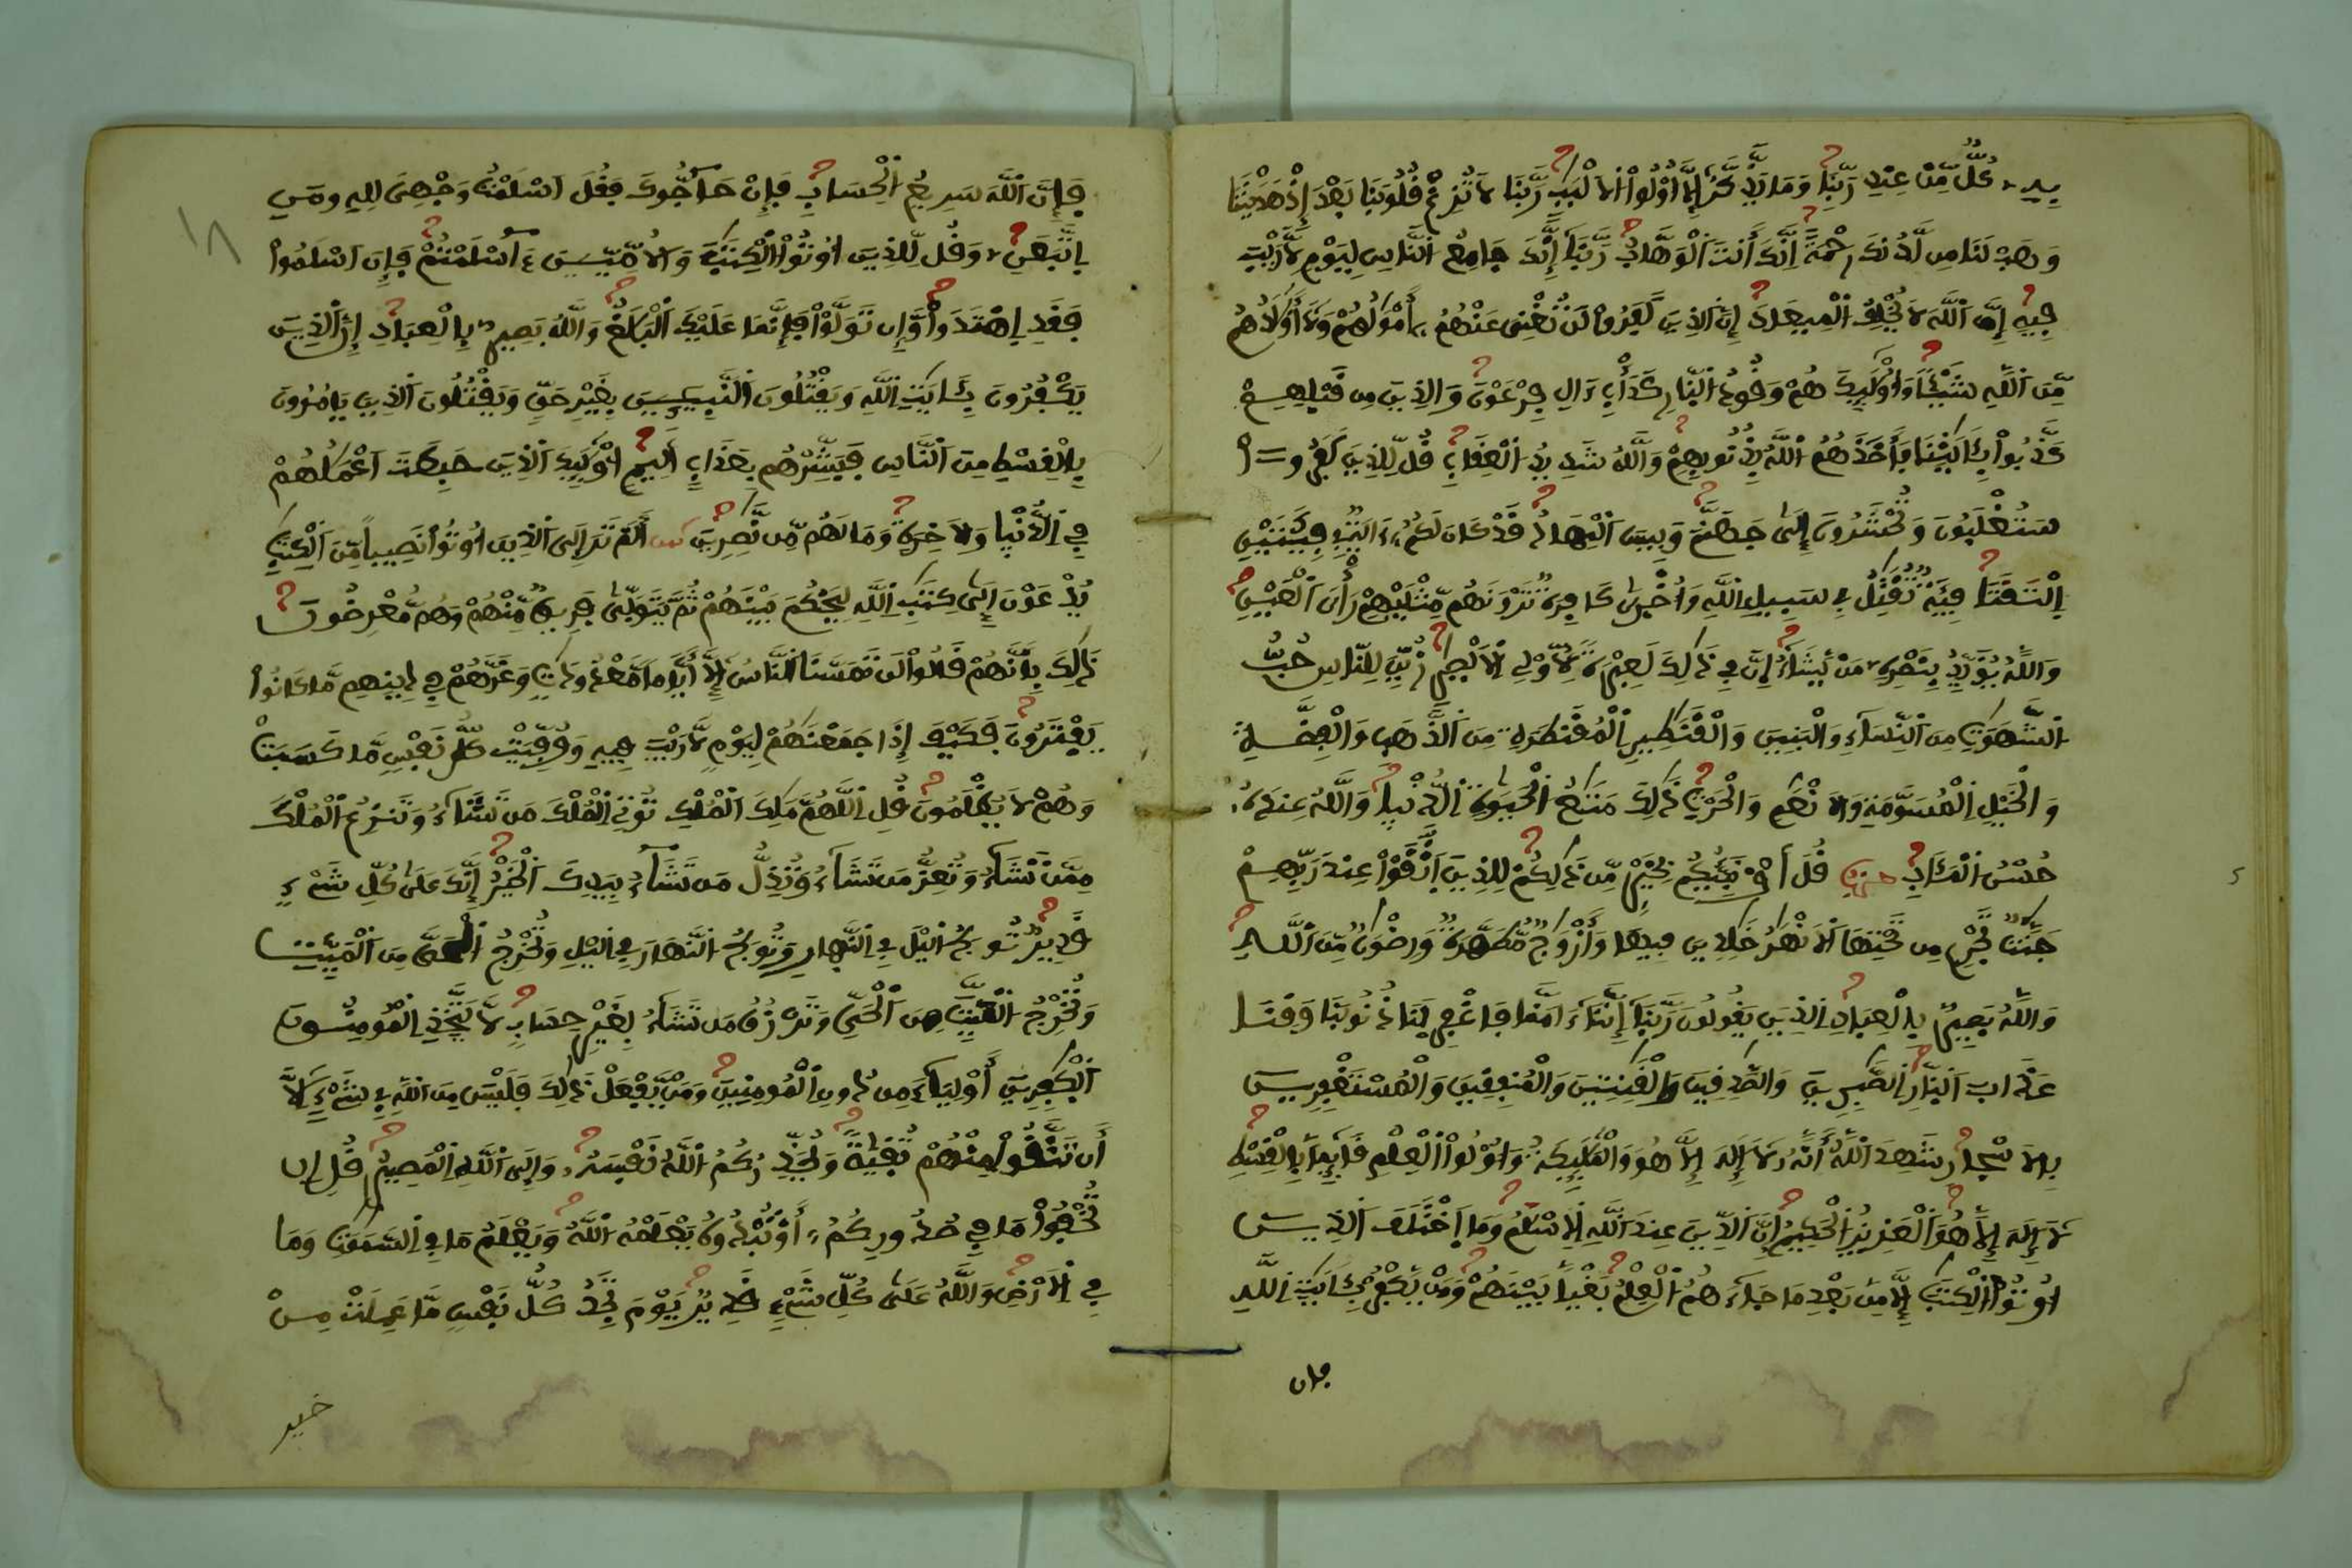 بِهِۦ كُلٌّ مِّنْ عِندِ رَبِّنَا وَمَا يَذَّكَّرُ إِلَّا أُوْلُواْ اُلَالْبَٰبِ رَبَّنَا لَا تُزِغْ قُلُوبَنَا بَعْدَ إِذْ هَدَيْتَنَا
وَهَبْ لَنَا مِن لَّدُنكَ رَحْمَةً اِنَّكَ أَنتَ اَلْوَهَّابُ رَبَّنَا إِنَّكَ جَامِعُ اُلنَّاسِ لِيَوْمٍ لَّا رَيْبَ
فِيهِ إِنَّ اَللَّهَ لَا يُخْلِفُ اُلْمِيعَادَ إِنَّ اَلذِينَ كَفَرُواْ لَن تُغْنِيَ عَنْهُمُۥ أَمْوَٰلُهُمْ وَلَا أَوْلَٰدُهُم
مِّنَ اَللَّهِ شَيْـًٔا وَأُوْلَٰٓئِكَ هُمْ وَقُودُ اُلنَّارِ كَدَأْبِ ءَالِ فِرْعَوْنَ وَالذِينَ مِن قَبْلِهِمْ
كَذَّبُواْ بِـَٔايَٰتِنَا فَأَخَذَهُمُ اُللَّهُ بِذُنُوبِهِمْ وَاللَّهُ شَدِيدُ اُلْعِقَابِ قُل لِّلذِينَ كَفَرُواْ
سَتُغْلَبُونَ وَتُحْشَرُونَ إِلَىٰ جَهَنَّمَ وَبِيسَ اَلْمِهَادُ قَدْ كَانَ لَكُمُۥ ءَايَةٌ فِي فِئَتَيْنِ
اِلْتَقَتَا فِئَةٌ تُقَٰتِلُ فِي سَبِيلِ اِللَّهِ وَأُخْرَىٰ كَافِرَةٌ تَرَوْنَهُم مِّثْلَيْهِمْ رَأْيَ اَلْعَيْنِ
وَاللَّهُ يُؤَيِّدُ بِنَصْرِهِۦ مَنْ يَّشَآءُ إِنَّ فِي ذَٰلِكَ لَعِبْرَةً لِّأُوْلِي اِلَابْصَٰرِ زُيِّنَ لِلنَّاسِ حُبُّ
اُلشَّهَوَٰتِ مِنَ اَلنِّسَآءِ وَالْبَنِينَ وَالْقَنَٰطِيرِ اِلْمُقَنطَرَةِ مِنَ اَلذَّهَبِ وَالْفِضَّةِ
وَالْخَيْلِ اِلْمُسَوَّمَةِ وَالَانْعَٰمِ وَالْحَرْثِ ذَٰلِكَ مَتَٰعُ اُلْحَيَوٰةِ اِلدُّنْيَا وَاللَّهُ عِندَهُۥ
حُسْنُ اُلْمَـَٔابِ حزب قُلَ أَؤُنَبِّئُكُم بِخَيْرٍ مِّن ذَٰلِكُمْ لِلذِينَ اَتَّقَوْاْ عِندَ رَبِّهِمْ
جَنَّٰتٌ تَجْرِي مِن تَحْتِهَا اَلَانْهَٰرُ خَٰلِدِينَ فِيهَا وَأَزْوَٰجٌ مُّطَهَّرَةٌ وَرِضْوَٰنٌ مِّنَ اَللَّهِ
وَاللَّهُ بَصِيرٌ بِالْعِبَادِ اِلذِينَ يَقُولُونَ رَبَّنَا إِنَّنَا ءَامَنَّا فَاغْفِرْ لَنَا ذُنُوبَنَا وَقِنَا
عَذَابَ اَلنَّارِ اِلصَّٰبِرِينَ وَالصَّٰدِقِينَ وَالْقَٰنِتِينَ وَالْمُنفِقِينَ وَالْمُسْتَغْفِرِينَ
بِالَاسْحَارِ شَهِدَ اَللَّهُ أَنَّهُۥ لَا إِلَٰهَ إِلَّا هُوَ وَالْمَلَٰٓئِكَةُ وَأُوْلُواْ اُلْعِلْمِ قَآئِماً بِالْقِسْطِ
لَا إِلَٰهَ إِلَّا هُوَ اَلْعَزِيزُ اُلْحَكِيمُ إِنَّ اَلدِّينَ عِندَ اَللَّهِ اِلِاسْلَٰمُ وَمَا اَخْتَلَفَ اَلذِينَ
أُوتُواْ اُلْكِتَٰبَ إِلَّا مِنۢ بَعْدِ مَا جَآءَهُمُ اُلْعِلْمُ بَغْياً بَيْنَهُمْ وَمَنْ يَّكْفُرْ بِـَٔايَٰتِ اِللَّهِ
فإن
فَإِنَّ اَللَّهَ سَرِيعُ اُلْحِسَابِ فَإِنْ حَآجُّوكَ فَقُلَ اَسْلَمْتُ وَجْهِيَ لِلهِ وَمَنِ
اِتَّبَعَنِۦ وَقُل لِّلذِينَ أُوتُواْ اُلْكِتَٰبَ وَالُامِّيِّينَ ءَآسْلَمْتُمْ فَإِنَ اَسْلَمُواْ
فَقَدِ اِهْتَدَواْ وَّإِن تَوَلَّوْاْ فَإِنَّمَا عَلَيْكَ اَلْبَلَٰغُ وَاللَّهُ بَصِيرٌ بِالْعِبَادِ إِنَّ اَلذِينَ
يَكْفُرُونَ بِـَٔايَٰتِ اِللَّهِ وَيَقْتُلُونَ اَلنَّبِيِٕينَ بِغَيْرِ حَقٍّ وَيَقْتُلُونَ اَلذِينَ يَامُرُونَ
بِالْقِسْطِ مِنَ اَلنَّاسِ فَبَشِّرْهُم بِعَذَابٍ اَلِيمٍ أُوْلَٰٓئِكَ اَلذِينَ حَبِطَتَ اَعْمَٰلُهُمْ
فِي اِلدُّنْيَا وَالَاخِرَةِ وَمَا لَهُم مِّن نَّٰصِرِينَ أَلَمْ تَرَ إِلَى اَلذِينَ أُوتُواْ نَصِيباً مِّنَ اَلْكِتَٰبِ
يُدْعَوْنَ إِلَىٰ كِتَٰبِ اِللَّهِ لِيَحْكُمَ بَيْنَهُمْ ثُمَّ يَتَوَلَّىٰ فَرِيقٌ مِّنْهُمْ وَهُم مُّعْرِضُونَ
ذَٰلِكَ بِأَنَّهُمْ قَالُواْ لَن تَمَسَّنَا اَلنَّارُ إِلَّا أَيَّاماً مَّعْدُودَٰتٍ وَغَرَّهُمْ فِي دِينِهِم مَّا كَانُواْ
يَفْتَرُونَ فَكَيْفَ إِذَا جَمَعْنَٰهُمْ لِيَوْمٍ لَّا رَيْبَ فِيهِ وَوُفِّيَتْ كُلُّ نَفْسٍ مَّا كَسَبَتْ
وَهُمْ لَا يُظْلَمُونَ قُلِ اِللَّهُمَّ مَٰلِكَ اَلْمُلْكِ تُوتِي اِلْمُلْكَ مَن تَشَآءُ وَتَنزِعُ اُلْمُلْكَ
مِمَّن تَشَآءُ وَتُعِزُّ مَن تَشَآءُ وَتُذِلُّ مَن تَشَآءُ بِيَدِكَ اَلْخَيْرُ إِنَّكَ عَلَىٰ كُلِّ شَيْءٍ
قَدِيرٌ تُولِجُ اُلَّيْلَ فِي اِلنَّهَارِ وَتُولِجُ اُلنَّهَارَ فِي اِلَّيْلِ وَتُخْرِجُ اُلْحَيَّ مِنَ اَلْمَيِّتِ
وَتُخْرِجُ اُلْمَيِّتَ مِنَ اَلْحَيِّ وَتَرْزُقُ مَن تَشَآءُ بِغَيْرِ حِسَابٍ لَّا يَتَّخِذِ اِلْمُومِنُونَ
اَلْكَٰفِرِينَ أَوْلِيَآءَ مِن دُونِ اِلْمُومِنِينَ وَمَنْ يَّفْعَلْ ذَٰلِكَ فَلَيْسَ مِنَ اَللَّهِ فِي شَيْءٍ إِلَّا
أَن تَتَّقُواْ مِنْهُمْ تُقَىٰةً وَيُحَذِّرُكُمُ اُللَّهُ نَفْسَهُۥ وَإِلَى اَللَّهِ اِلْمَصِيرُ قُلِ اِن
تُخْفُواْ مَا فِي صُدُورِكُمُۥ أَوْ تُبْدُوهُ يَعْلَمْهُ اُللَّهُ وَيَعْلَمُ مَا فِي اِلسَّمَٰوَٰتِ وَمَا
فِي اِلَارْضِ وَاللَّهُ عَلَىٰ كُلِّ شَيْءٍ قَدِيرٌ يَوْمَ تَجِدُ كُلُّ نَفْسٍ مَّا عَمِلَتْ مِنْ
خير